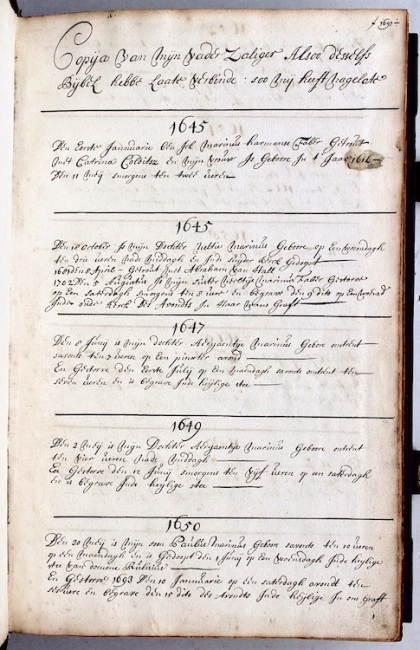 Copija Van Mijn Vader Zaliger Alsoo desselfs
Bijbel hebbe Laate Verbinde soo Mij heeft Nagelate
1645
Den Eerste Januuarie ben Ick Marinus harmanse Faber Getrout
Met Catrina Is Gebore In t Jaar 1616
Den 11 Meij smorgens ten twee uren
1645
Den 18 October Is Mijn Dochter Neeltie Marinus Gebore op Een Woensdagh
ten drie ueren Nade Middagh en Inde Kerck Gedoopt
den 8 April Getrout Met Abraham Van Stalt
1702 Den 5 Augustus Is Mijn Suster Neeltije Marinus Faber Gestorve
op Een Saterdagh smorgens ten 8 uere en begrave den 9 dito op Een
Inde oude kerck des Avondts In Haar Mans Graft
1647
Den 8 Junij is Mijn dochter Adrijaentje Marinus Gebore ontrent
savonts ten 7 ueren op een pinxter avond
En Gestorve den Eerste Julij op Een Maendagh savonts ontrent ten
seven ueren en is begrave Inde heijlige stee
1649
Den 2 Meij is Mijn Dochter Adryaentje Marinus Gebore ontrent
ten Vier ueren Nade Middagh
En Gestorve den 12 Junij smorgens ten Vijf ueren op een saterdagh
en is begrave Inde heylige stee
1650
Den 20 Meij is Mijn soon Paulus Marinus Gebore savonts ten 10 ueren
op een Maendagh en is Gedoopt den 1 Junij op Een Woensdagh Inde heylige
stee Van domene
En Gestorve 1693 Den 10 Januuarie op een saterdagh avondt ten
en begrave den 15 dito des Avondts Inde heijlige In ons Graft